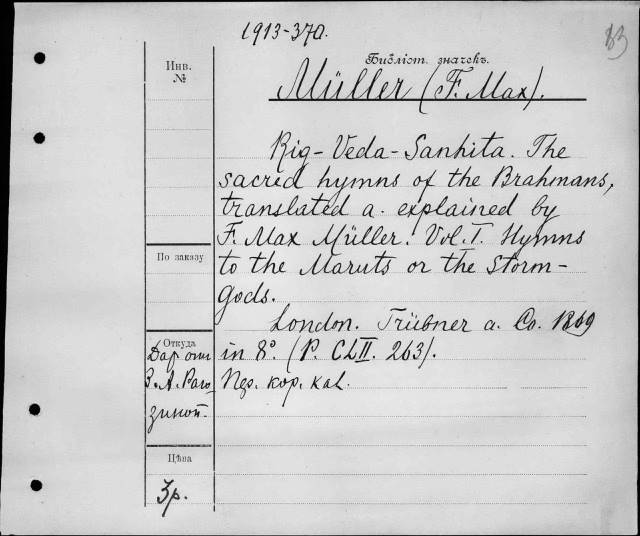 1913-370.
83
Библіот. значекъ.
Инв.
№
Müller (F. Max).
Rig-Veda-Sanhita. The
sacred hymns of the Brahmans,
translated a. explained by
F. Max Müller. Vol. I. Hymns
to the Maruts or the Storm-
gods.
По заказу
London. Trübner a. Co. 1869
Откуда
in 8°. (P. CLII. 263).
Дар отъ
З. А. Раго-
зиной.
кор. кal.
Цѣна
3р.